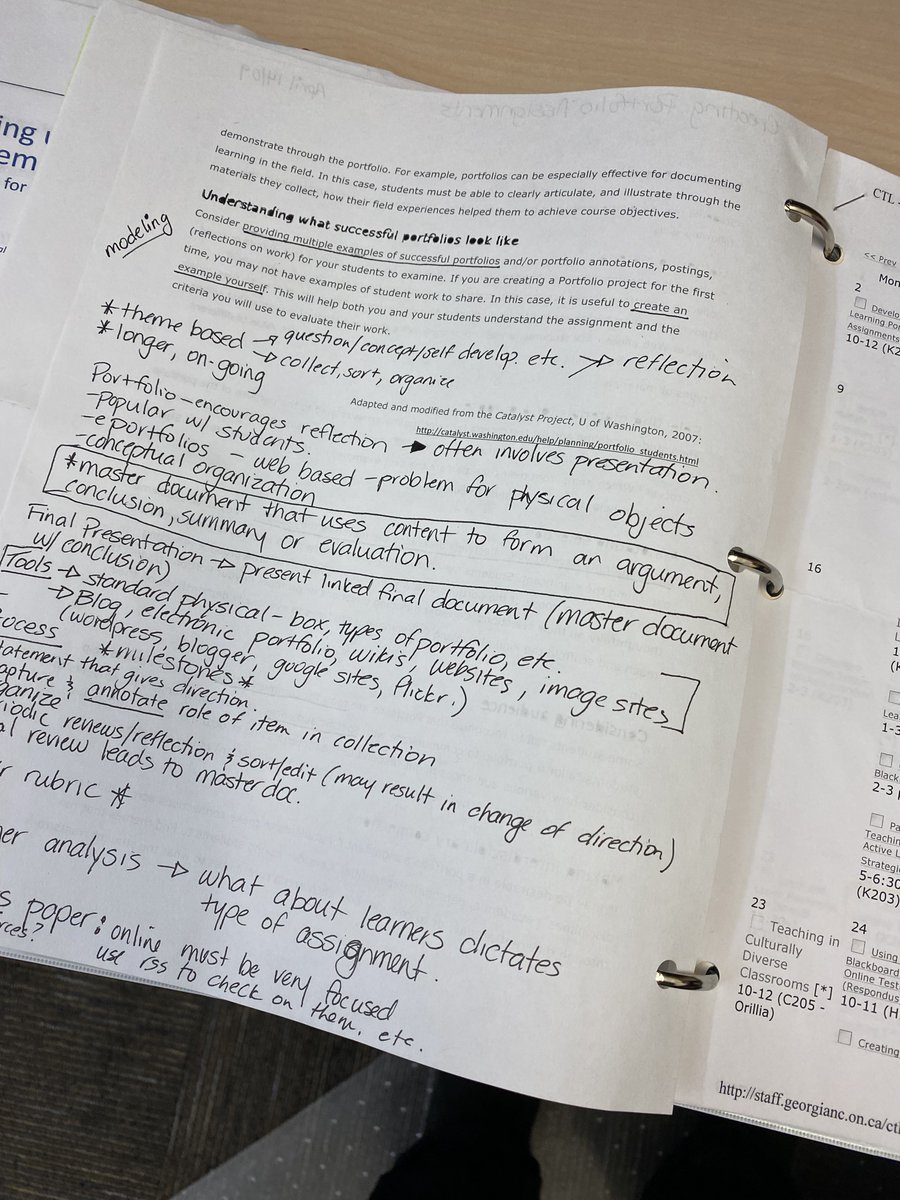 April 14/09
Creating Portfolio Assignments
demonstrate through the portfolio. For example, portfolios can be especially effective for documenting
learning in the field. In this case, students must be able to clearly articulate, and illustrate through the
materials they collect, how their field experiences helped them to achieve course objectives.
Understanding what successful portfolios look like
modeling
Consider providing multiple examples of successful portfolios and/or portfolio annotations, postings,
(reflections on work) for your students to examine. If you are creating a Portfolio project for the first
time, you may not have examples of student work to share. In this case, it is useful to create an
example yourself. This will help both you and your students understand the assignment and the
criteria you will use to evaluate their work.
* theme based → question/concept/self develop. etc. → reflection
* longer, on-going → collect, sort, organize
Adapted and modified from the Catalyst Project, U of Washington, 2007:
http://catalyst.washington.edu/help/planning/portfolio_students.html
Portfolio - encourages reflection → often involves presentation.
- Popular w/ students.
- eportfolios - web based - problem for physical objects
- conceptual organization
* master document that uses content to form an argument,
conclusion, summary or evaluation.
Final Presentation → present linked final document (master document
w/ conclusion)
Tools → standard physical - box, types of portfolio, etc.
→ Blog, electronic portfolio, wikis, websites, image sites
(wordpress, blogger, google sites, flickr.)
ocess *milestones*
tatement that gives direction.
apture & annotate role of item in collection
ganize
riodic reviews/reflection & sort/edit (may result in change of direction)
al review leads to master doc.
r rubric *
er analysis → what about learners dictates
type of assignment.
s paper: online must be very focused
rces? use rss to check on them. etc.
ing
em
for
CTL
<< Prev
Mon
2
Develo
Learning Po
Assignments
10-12 (K2
9
16
Lea
1-3
Black
2-3
Pa
Teachin
Active L
Strategi
5-6:30
(K203)
23
Teaching in
Culturally
Diverse
Classrooms [*]
10-12 (C205 -
Orillia)
24
Using
Blackboard
Online Test
(Respondus
10-11 (H
Creating
http://staff.georgianc.on.ca/ctl